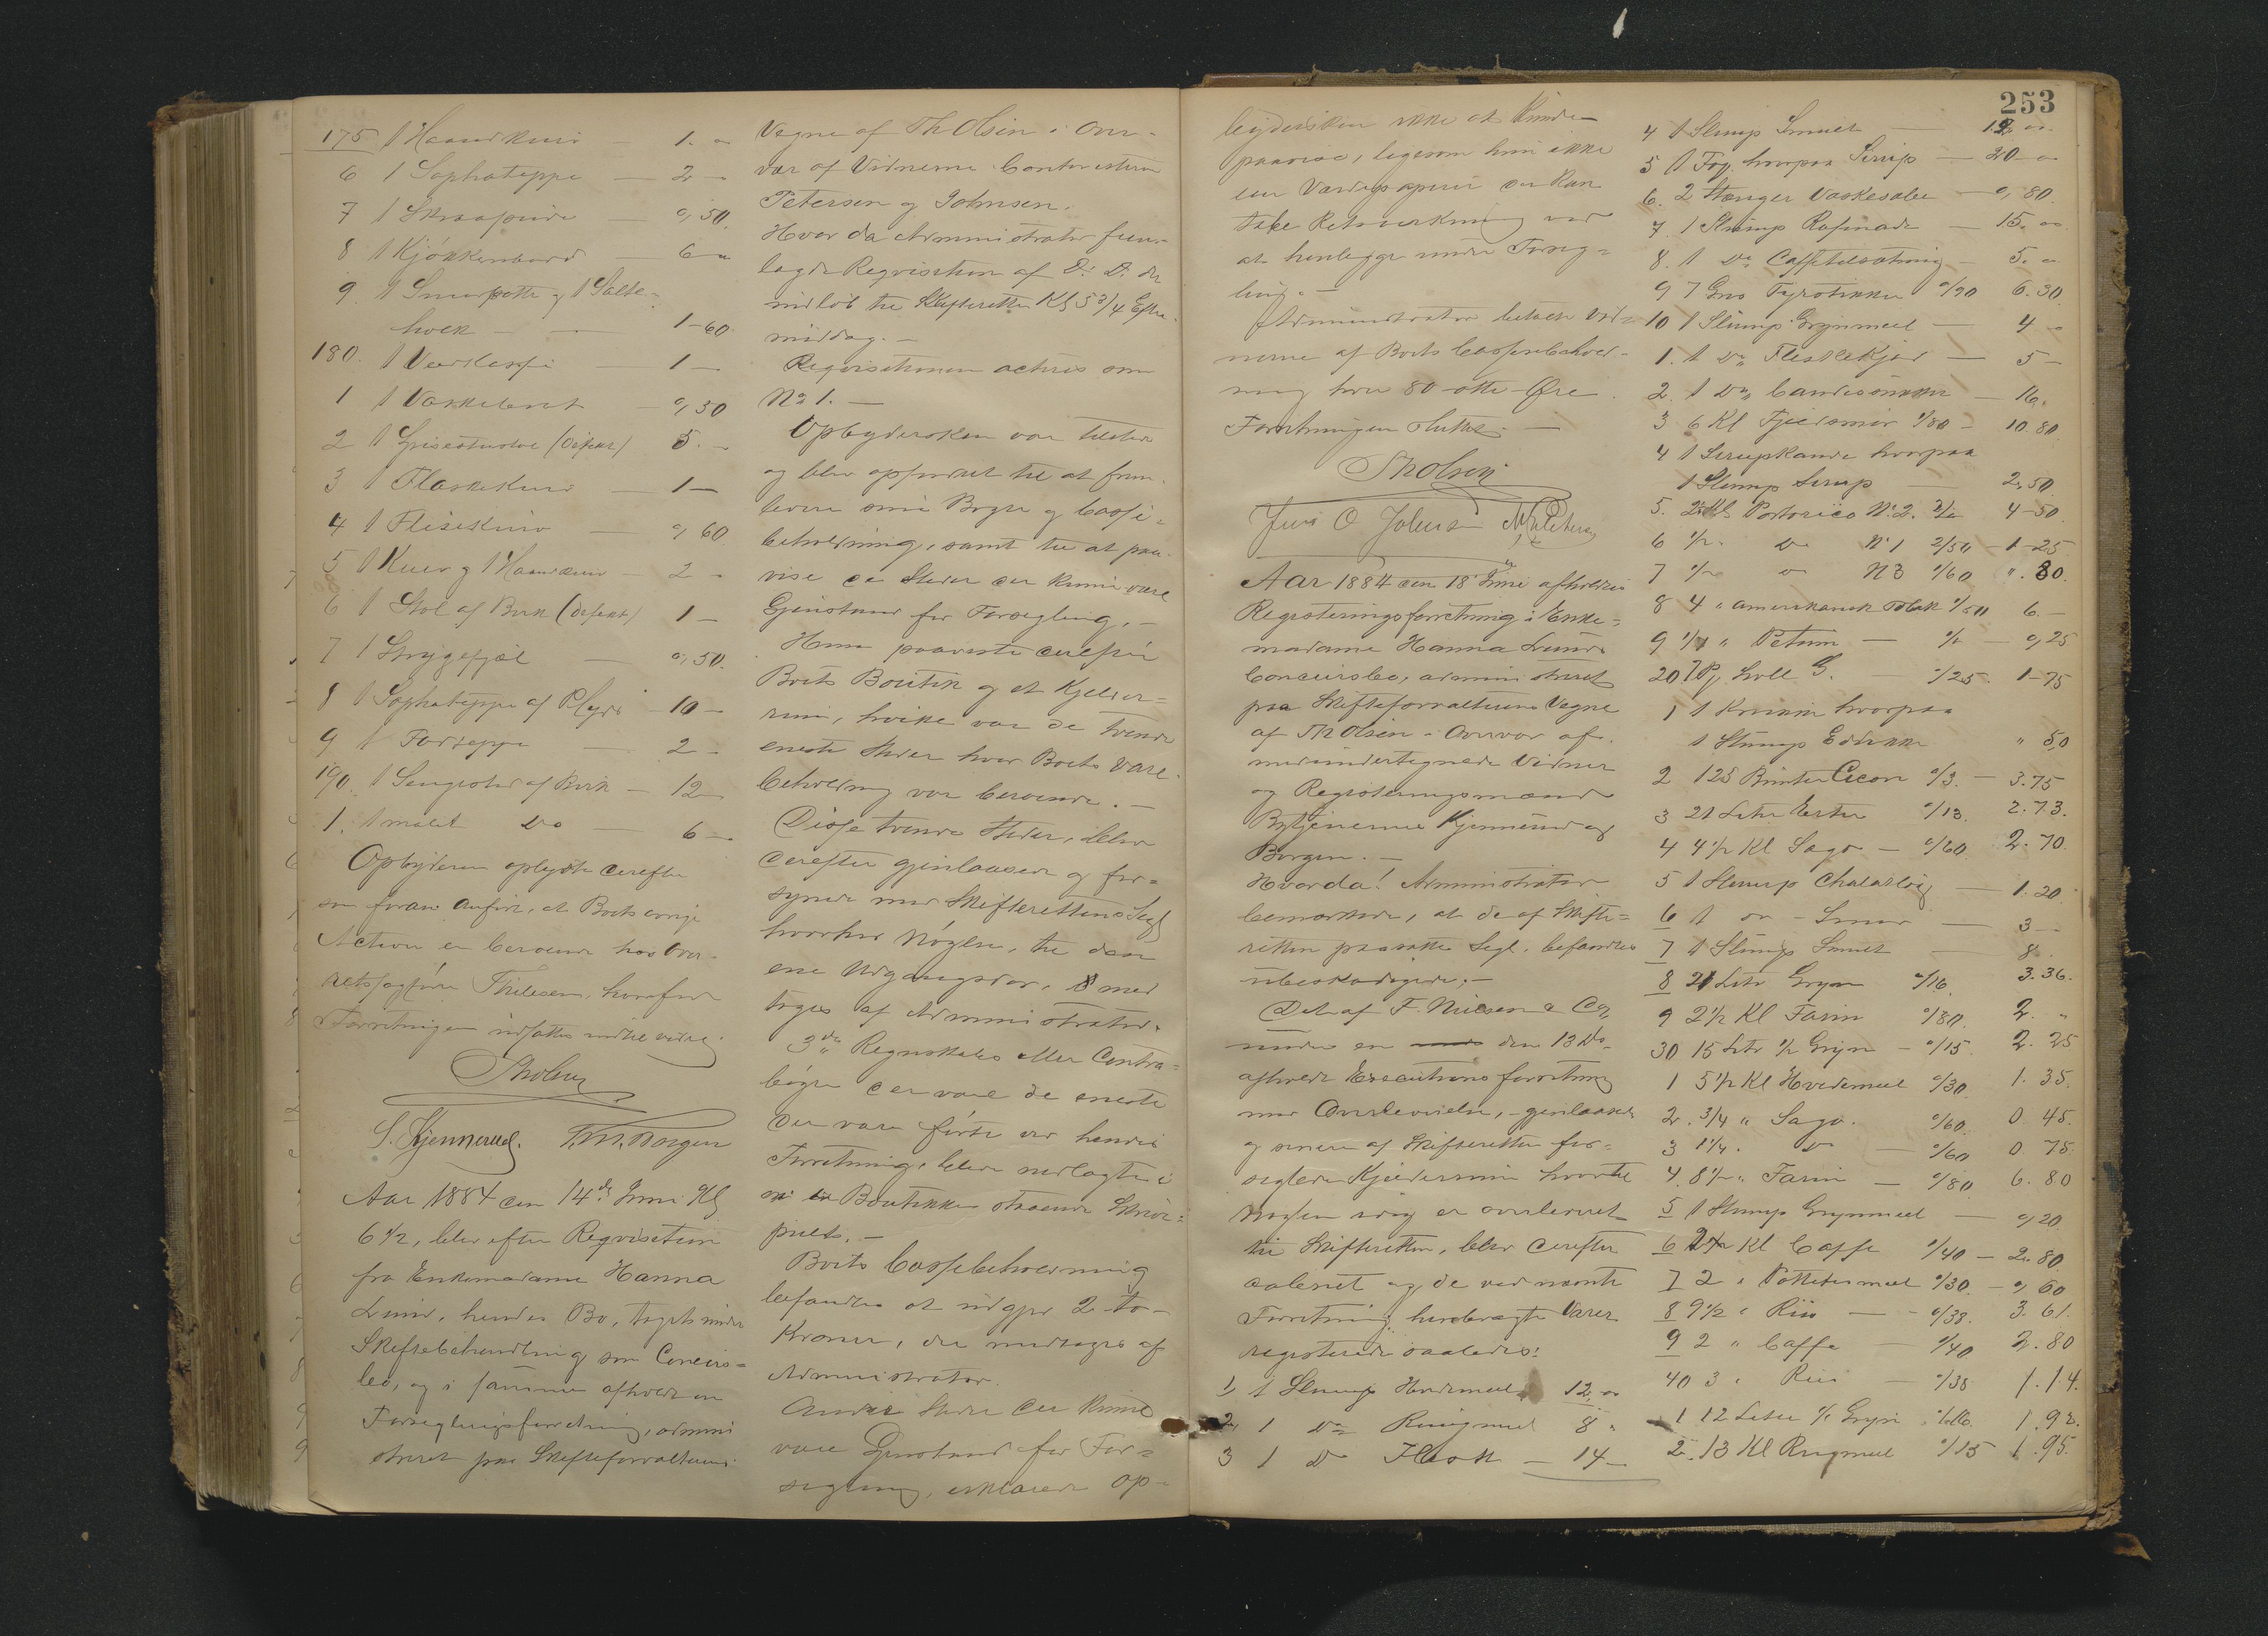 175 1 Haandkurv — 1. "
6 1 Sophateppe — 2 —
7 1 — 0,50.
8 1 Kjøkkenbord — 6 "
9. 1 Smørpotte og 1 Salte-
— 1-60.
180. 1 — 1 —
1 1 Vaskebræt — 0,30
2 1 (Defekt) 5. —
3 1 Flaskekurv — 1 —
4 1 Flisekurv — 0,60.
5 1 Kurv og 1 Haandkurv — 2 —
6 1 Stol af Birk (Defekt) 1 —
7 1 Strygefjæl — 0,50.
8 1 Sophateppe af Plyds — 10 —
9 1 Forteppe — 2 —
190. 1 Sengested af Birk — 12
1. 1 malet Do — 6 —
Opbyderen oplyste derefter
som foran anført, at Boets øvrige
Activer er beroende hos Over-
retssagfører Thilesen, hvorfor
Forretningen udsattes indtil videre.
Th Olsen
S. Kjennerud. Borgen
Aar 1884 den 14de Juni Kl
6 1/2, blev efter Reqvisition
fra Enkemadame Hanna
Lund, hendes Bo, taget under
Skiftebehandling som Concurs-
bo, og i samme afholdt en
Forseglingsforretning, admini
streret paa Skifteforvalterens
Vegne af Th Olsen i Over-
vær af Vidnerne Contoristerne
Petersen og Johnsen.
Hvor da Administrator frem-
lagde Reqvisition af D. D. der
indløb til Skifteretten Kl 5 3/4 Efter-
middag. —
Reqvisitionen acteres som
No 1. —
Opbydersken var tilstede
og blev opfordret til at frem-
levere sine Bøger og Casse-
beholdning, samt til at paa-
vise de Steder der kunne være
Gjenstand for Forsegling. —
Hun paaviste derefter
Boets Boutik og et Kjelder-
rum, hvilke var de tvende
eneste Steder hvor Boets Vare-
beholdning var beroende. —
Disse tvende Steder, blev
derefter gjenlaasede og for-
synede med Skifterettens Segl
hvorhos Nøglen, til den
ene Udgangsdør, med
toges af Administrator.
3de Regnskabs eller Contra-
bøger der vare de eneste
der vare førte ved hendes
Forretning, blev nedlagte i
en i Boutikken staaende Skriv-
pult. —
Boets Cassebeholdning
befandtes at udgjør 2 - to -
Kroner, der medtages af
Administrator.
Andre Steder der kunne
være Gjenstand for For-
segling, erklærede Op-
253
bydersken ikke at kunde
paavise, ligesom hun ikke
eier Værdipapirer der kan
Forseg-
ling. —
Administrator betalte Vid-
nerne af Boets Cassebehold-
ning hver 80 otti Øre
Forretningen sluttet. —
Th Olsen
Jens O Johnsen
Aar 1884 den 18 Juni afholdtes
Registreringsforretning i Enke-
madame Hanna Lunds
Concursbo, administreret
paa Skifteforvalterens Vegne
af Th Olsen i Overvær af
medundertegnede Vidner
og Registreringsmænd
Bytjenerne Kjennerud og
Borgen. —
Hvorda! Administrator
bemærkede, at de af Skifte-
retten paasatte Segl, befandtes
ubeskadigede. —
Det af F. Nielsen & Co
under en den 13 Ds
afholdt Executionsforretning
med Overleverelse, gjenlaaset
og senere af Skifteretten for-
seglede Kjelderrum hvortil
Nøglen er overleveret
til Skifteretten, blev derefter
aabnet og, de ved nævnte
Forretning henbragte Varer
registrerede saaledes:
1, 1 Slump Hvedemeel 12. "
2, 1 Do Rugmeel 8 "
3 1 Do — 14 —
4 1 Slump Smult — 12 "
5 1 Fog. hvorpaa Sirup — 20 "
6. 2 Stænger Vaskesæbe — 0,80.
7. 1 Slump Rafinade — 15. "
8. 1 Do Caffetilsætning — 5. "
9 7 Gros Fyrstikker 0/90 6.30.
10 1 Slump Grynmeel — 4 "
1. 1 Do — 5 —
2. 1 Do Candissukker — 16.
3 6 Kl Fjeldsmør 1/80 — 10.80.
4 1 Sirupskande hvorpaa
1 Slump Sirup — 2,50.
5. 2 Kl Portorico No 2. 4-50.
6 1/2 " Do No 1 2/50 — 1-25.
7 1/2 " Do N 3 1/60 ". 80.
8 4 " amerikansk Tobak 1/50 6. —
9 " Petum — 0,25
20 7 — 0/25. 1-75
1 1 hvorpaa
1 Slump Eddikke " 50
2 125 Bunter Cicori 0/3. — 3.75
3 21 Liter Erter 0/13. 2.73.
4 4 1/2 Kl Sago — 0/60. 2.70.
5 1 Slump — 1.20.
6 1 Do Smør — 3 —
7 1 Slump Smult 8.
8 21 Liter Gryn 0/16. 3.36.
9 2 1/2 Kl Farin 0/80. 2. "
30 15 Litr 1/2 Gryn — 0/15. 2.25
1 5 1/2 Kl Hvedemeel 0/30. 1.35.
2. 3/4 " Sago. 0/60. 0.45.
3 1 1/4. Do — 0/60 0.75.
4. 8 1/2 " Farin — 0/80. 6.80
5 1 Slump Grynmeel — 0,20.
6 Kl Caffe 1/40 — 2.80.
7 2 " Pottetesmeel 0/30. — 0,60
8 9 1/2 " Riis — 0/38. 3.61.
9 2 " Caffe — 1/40 2.80
40 3 " Riis — 0/38 1.14.
1 12 Liter 1/1 Gryn 0/16. 1.92.
2. 13 Kl Rugmeel 0/15 1.95.